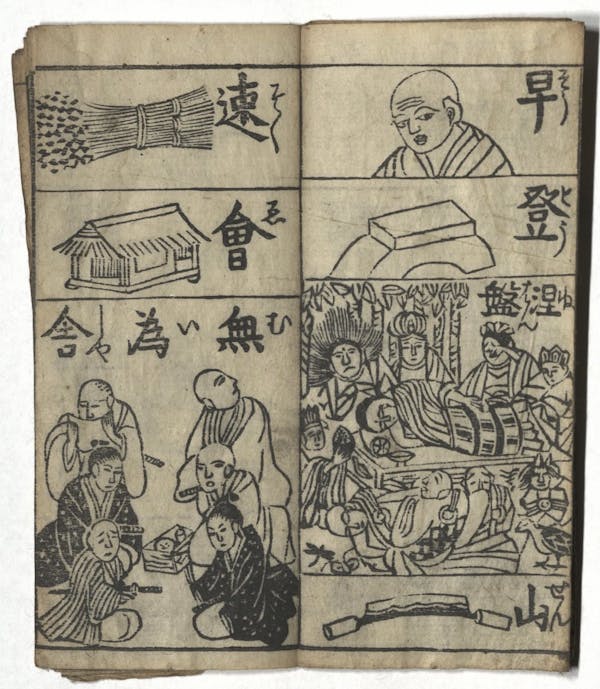 早 そう
登 とう
涅盤 ねはん
山 せん
速 そく
會 ゑ
無為舎 むいしや